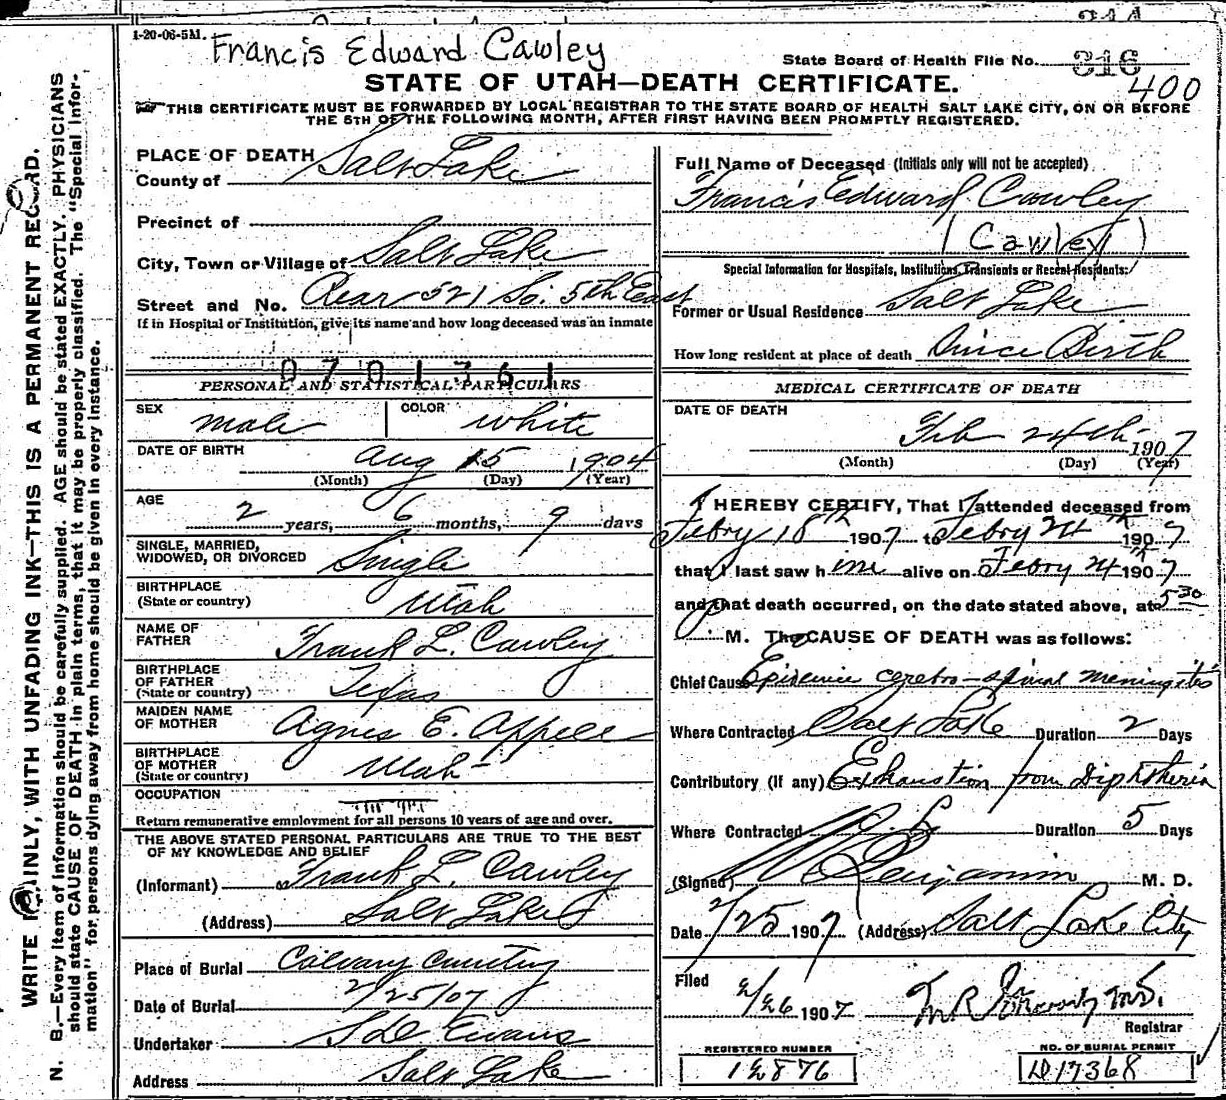 1-20-06-5M.
Francis Edward Cawley
State Board of Health File No. 316
400
STATE OF UTAH—DEATH CERTIFICATE.
THIS CERTIFICATE MUST BE FORWARDED BY LOCAL REGISTRAR TO THE STATE BOARD OF HEALTH SALT LAKE CITY, ON OR BEFORE
THE 5TH OF THE FOLLOWING MONTH, AFTER FIRST HAVING BEEN PROMPTLY REGISTERED.
WRITE PLAINLY, WITH UNFADING INK—THIS IS A PERMANENT RECORD.
N. B.—Every item of information should be carefully supplied. AGE should be stated EXACTLY. PHYSICIANS
should state CAUSE OF DEATH in plain terms, that it may be properly classified. The "Special Infor-
mation" for persons dying away from home should be given in every instance.
PLACE OF DEATH
County of Salt Lake
Precinct of
City, Town or Village of Salt Lake
Street and No. Rear 521 So. 5th East
If in Hospital or Institution, give its name and how long deceased was an inmate
0701361
PERSONAL AND STATISTICAL PARTICULARS
SEX male COLOR white
DATE OF BIRTH Aug 15 1904
(Month) (Day) (Year)
AGE 2 years, 6 months, 9 days
SINGLE, MARRIED,
WIDOWED, OR DIVORCED Single
BIRTHPLACE
(State or country) Utah
NAME OF
FATHER Frank L. Cawley
BIRTHPLACE
OF FATHER
(State or country) Texas
MAIDEN NAME
OF MOTHER Agnes E. Appell
BIRTHPLACE
OF MOTHER
(State or country) Utah
OCCUPATION
Return remunerative employment for all persons 10 years of age and over.
THE ABOVE STATED PERSONAL PARTICULARS ARE TRUE TO THE BEST
OF MY KNOWLEDGE AND BELIEF
(Informant) Frank L. Cawley
(Address) Salt Lake
Place of Burial Calvary Cemetery
Date of Burial 2/25/07
Undertaker S D Evans
Address Salt Lake
Full Name of Deceased (Initials only will not be accepted)
Francis Edward Crowley
(Cawley)
Special Information for Hospitals, Institutions, Transients or Recent Residents:
Former or Usual Residence Salt Lake
How long resident at place of death Since Birth
MEDICAL CERTIFICATE OF DEATH
DATE OF DEATH
Feb 24th 1907
(Month) (Day) (Year)
I HEREBY CERTIFY, That I attended deceased from
Febry 18th 1907 to Febry 24th 1907
that I last saw him alive on Febry 24th 1907
and that death occurred, on the date stated above, at 5 30
P M. The CAUSE OF DEATH was as follows:
Chief Cause Epidemic cerebro-spinal meningitis
Where Contracted Salt Lake Duration 2 Days
Contributory (if any) Exhaustion from Diphtheria
Where Contracted Duration 5 Days
(Signed) Benjamin M. D.
Date 2/25 1907 (Address) Salt Lake City
Filed 2/26 1907
Registrar
REGISTERED NUMBER
12876
NO. OF BURIAL PERMIT
D17368